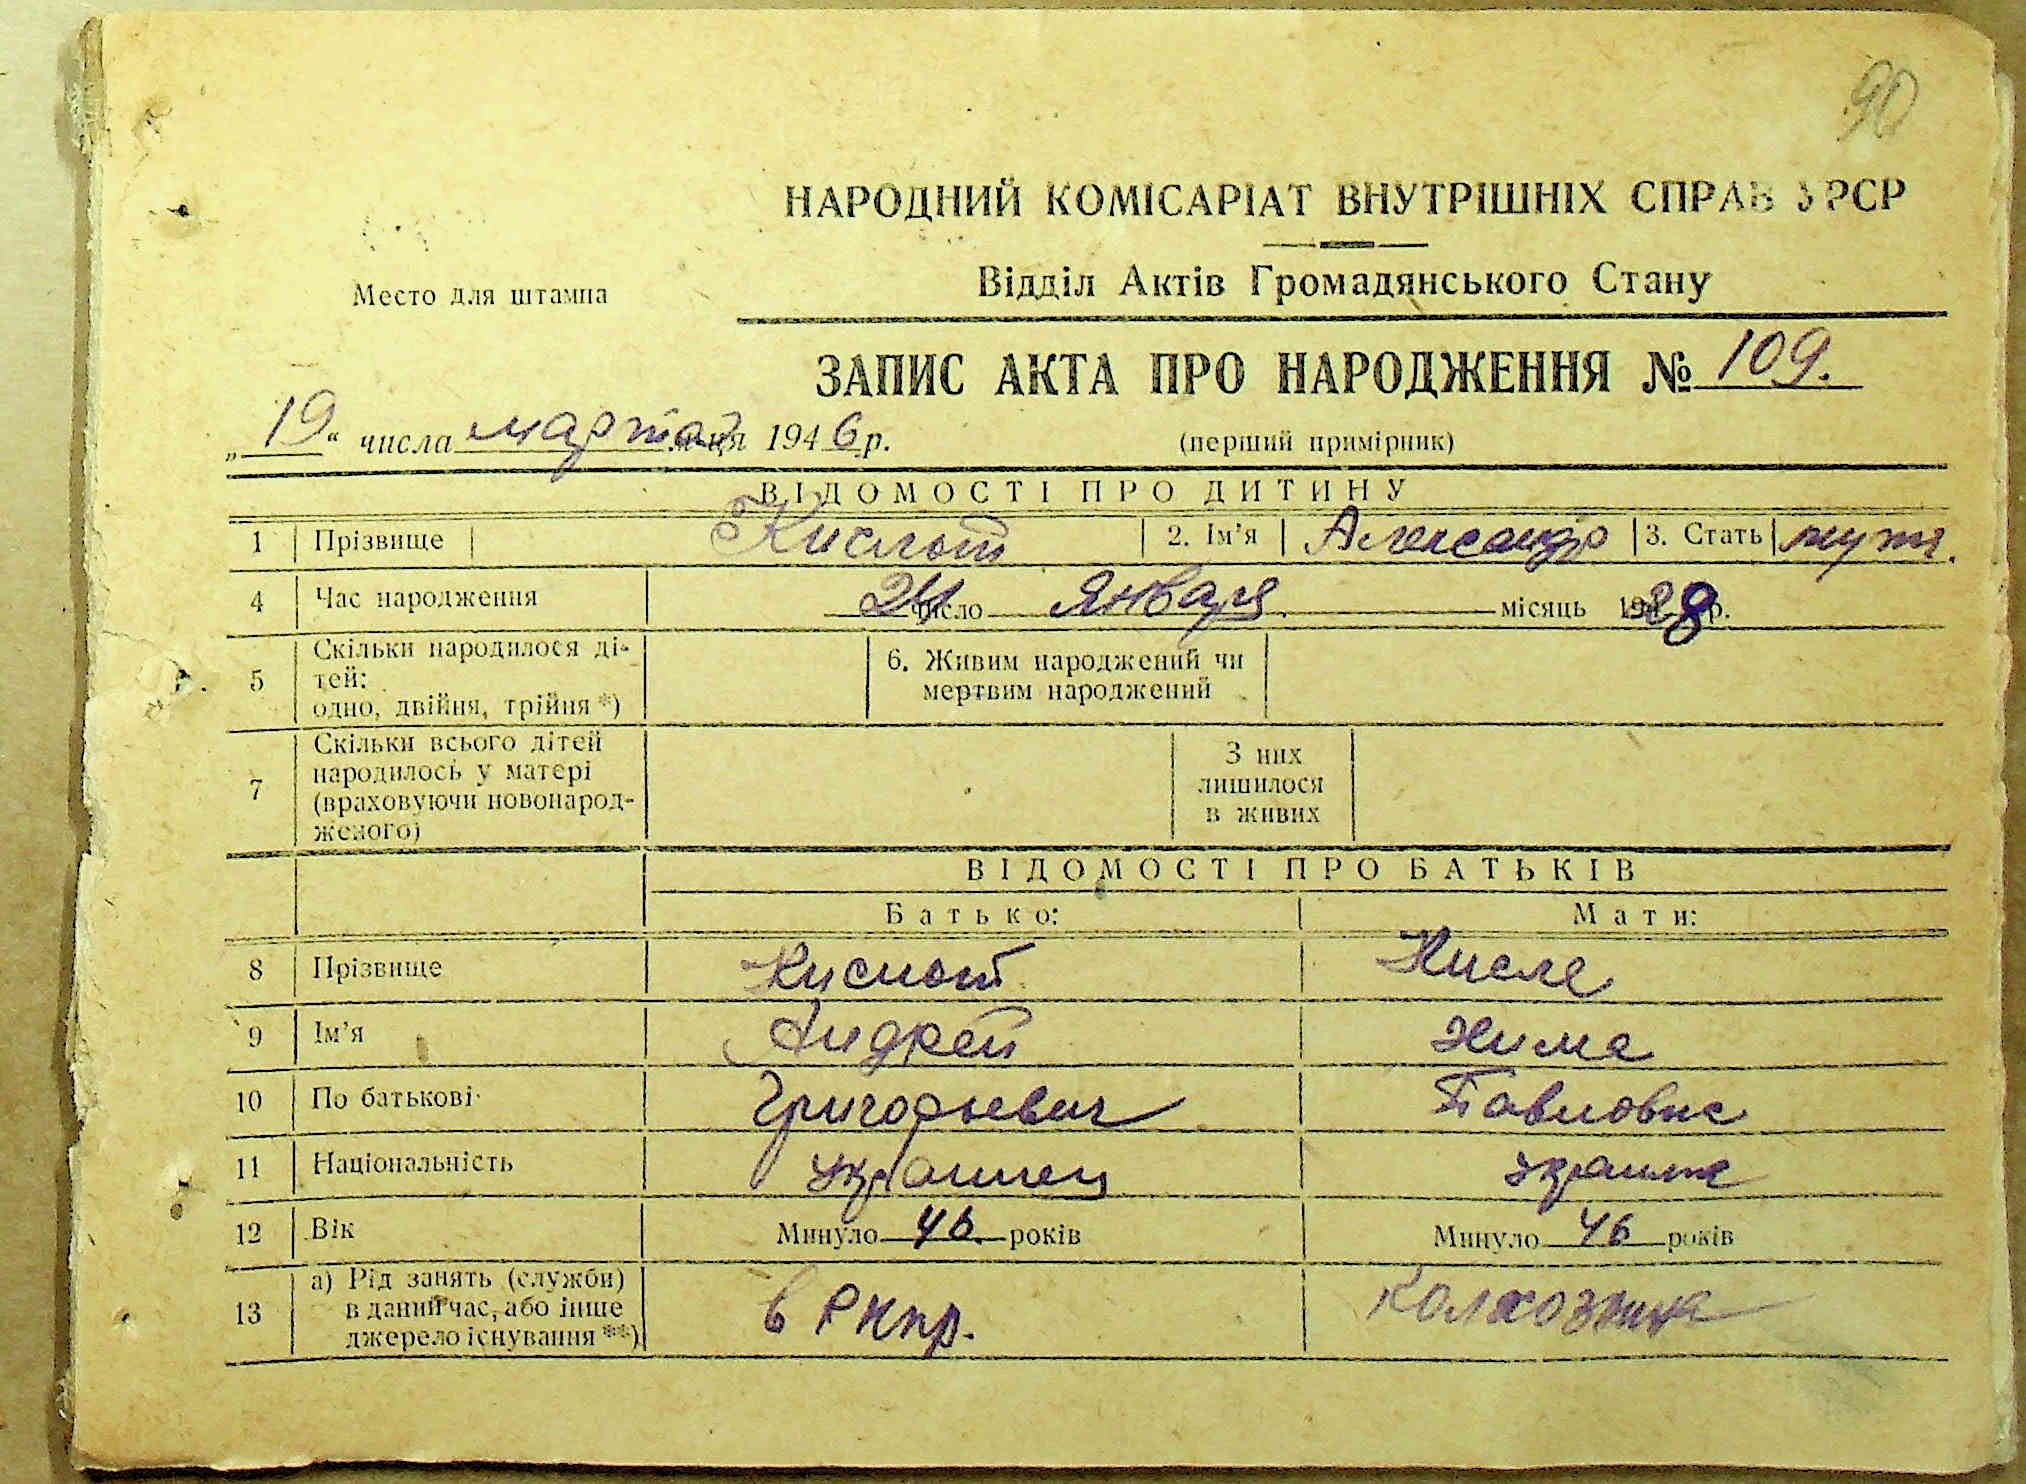 90
НАРОДНИЙ КОМІСАРІАТ ВНУТРІШНІХ СПРАВ УРСР
Место для штампа
Відділ Актів Громадянського Стану
ЗАПИС АКТА ПРО НАРОДЖЕННЯ № 109.
„19“ числа марта м-ця 1946 р. (перший примірник)
ВІДОМОСТІ ПРО ДИТИНУ
1 Прізвище Кислот 2. Ім'я Александр 3. Стать муж.
4 Час народження 24 число Января місяць 1928 р.
5 Скільки народилося ді-
тей:
одно, двійня, трійня *)
6. Живим народжений чи
мертвим народжений
7 Скільки всього дітей
народилось у матері
(враховуючи новонарод-
женого)
З них
лишилося
в живих
ВІДОМОСТІ ПРО БАТЬКІВ
Батько: Мати:
8 Прізвище Кислот
9 Ім'я Андрей
10 По батькові Григорьевич Павловна
11 Національність украинец
12 Вік Минуло 46 років Минуло 46 років
13 а) Рід занять (служби)
в даний час, або інше
джерело існування **)
в колхозница